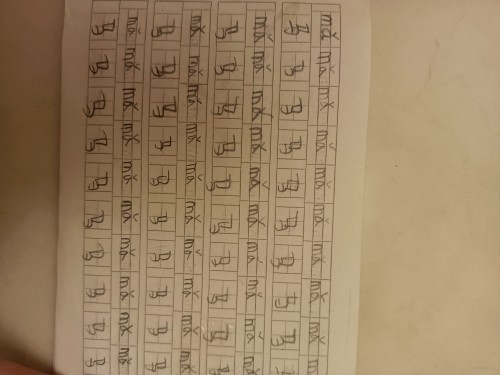 mǎ mǎ mǎ mǎ mǎ mǎ mǎ mǎ mǎ
马 马 马 马 马 马 马 马 马
mǎ mǎ mǎ mǎ mǎ mǎ mǎ mǎ mǎ mǎ
马 马 马 马 马 马 马 马 马 马
mǎ mǎ mǎ mǎ mǎ mǎ mǎ mǎ mǎ mǎ
马 马 马 马 马 马 马 马 马 马
mǎ mǎ mǎ mǎ mǎ mǎ mǎ mǎ mǎ mǎ
马 马 马 马 马 马 马 马 马 马